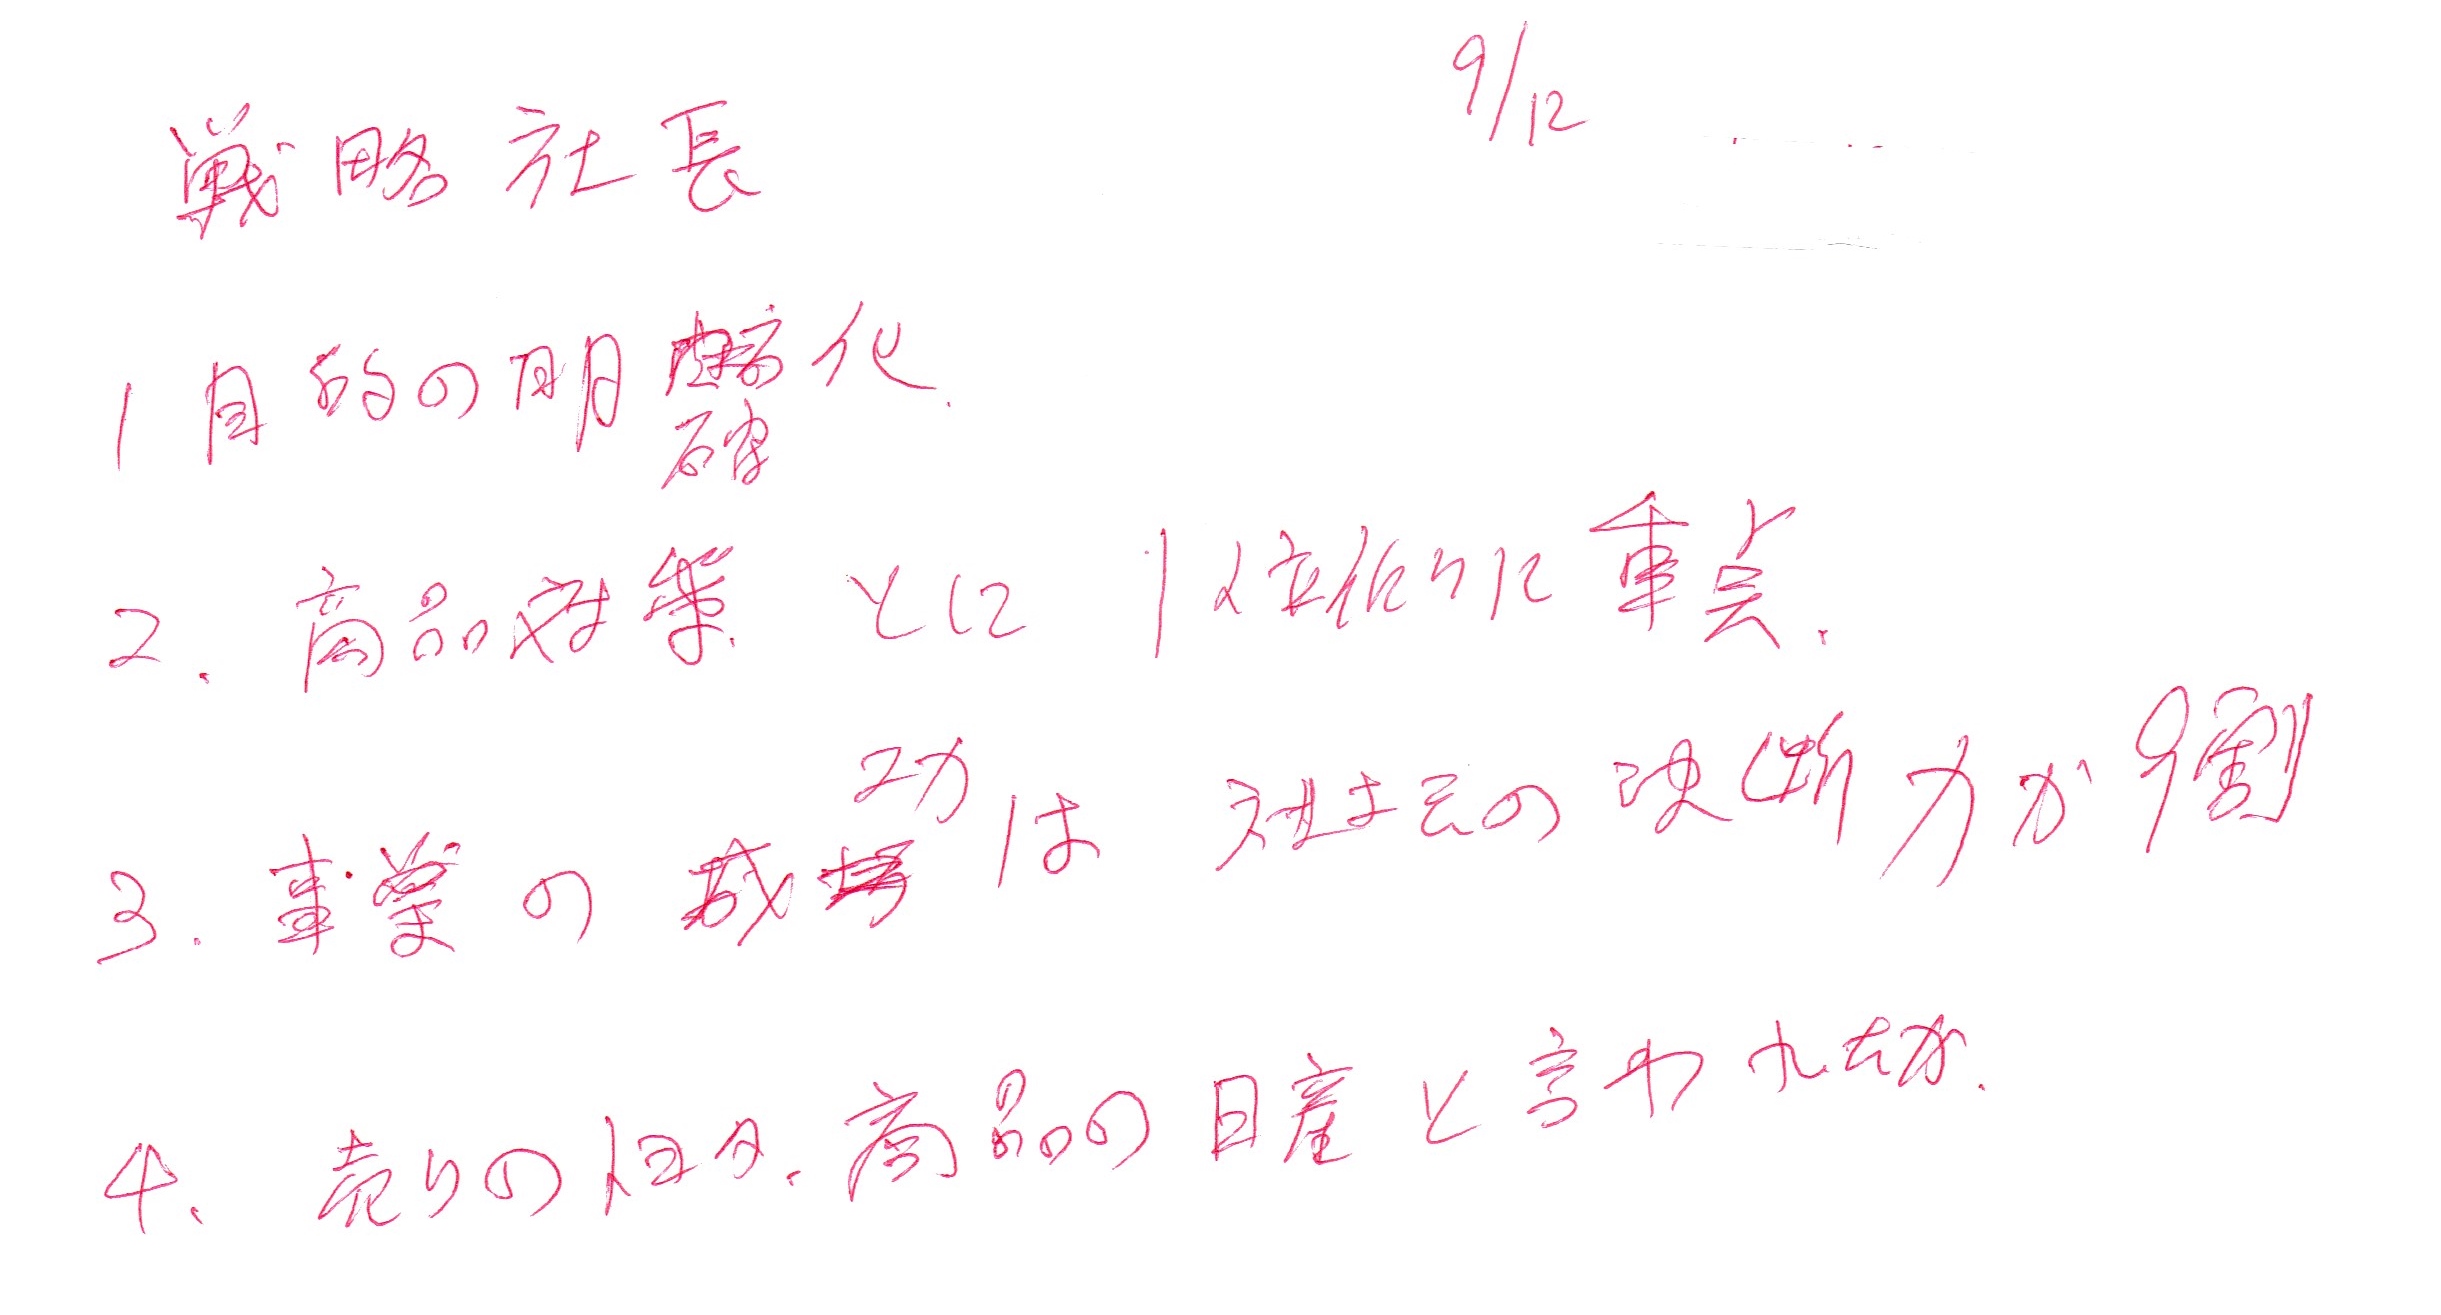 9/12
戦略社長
1 目的の明確化.
2. 商品対策 とに 1位作りに重点.
3. 事業の成功は 社長の決断力が9割
4. 売りの 商品の日産と言われたが.